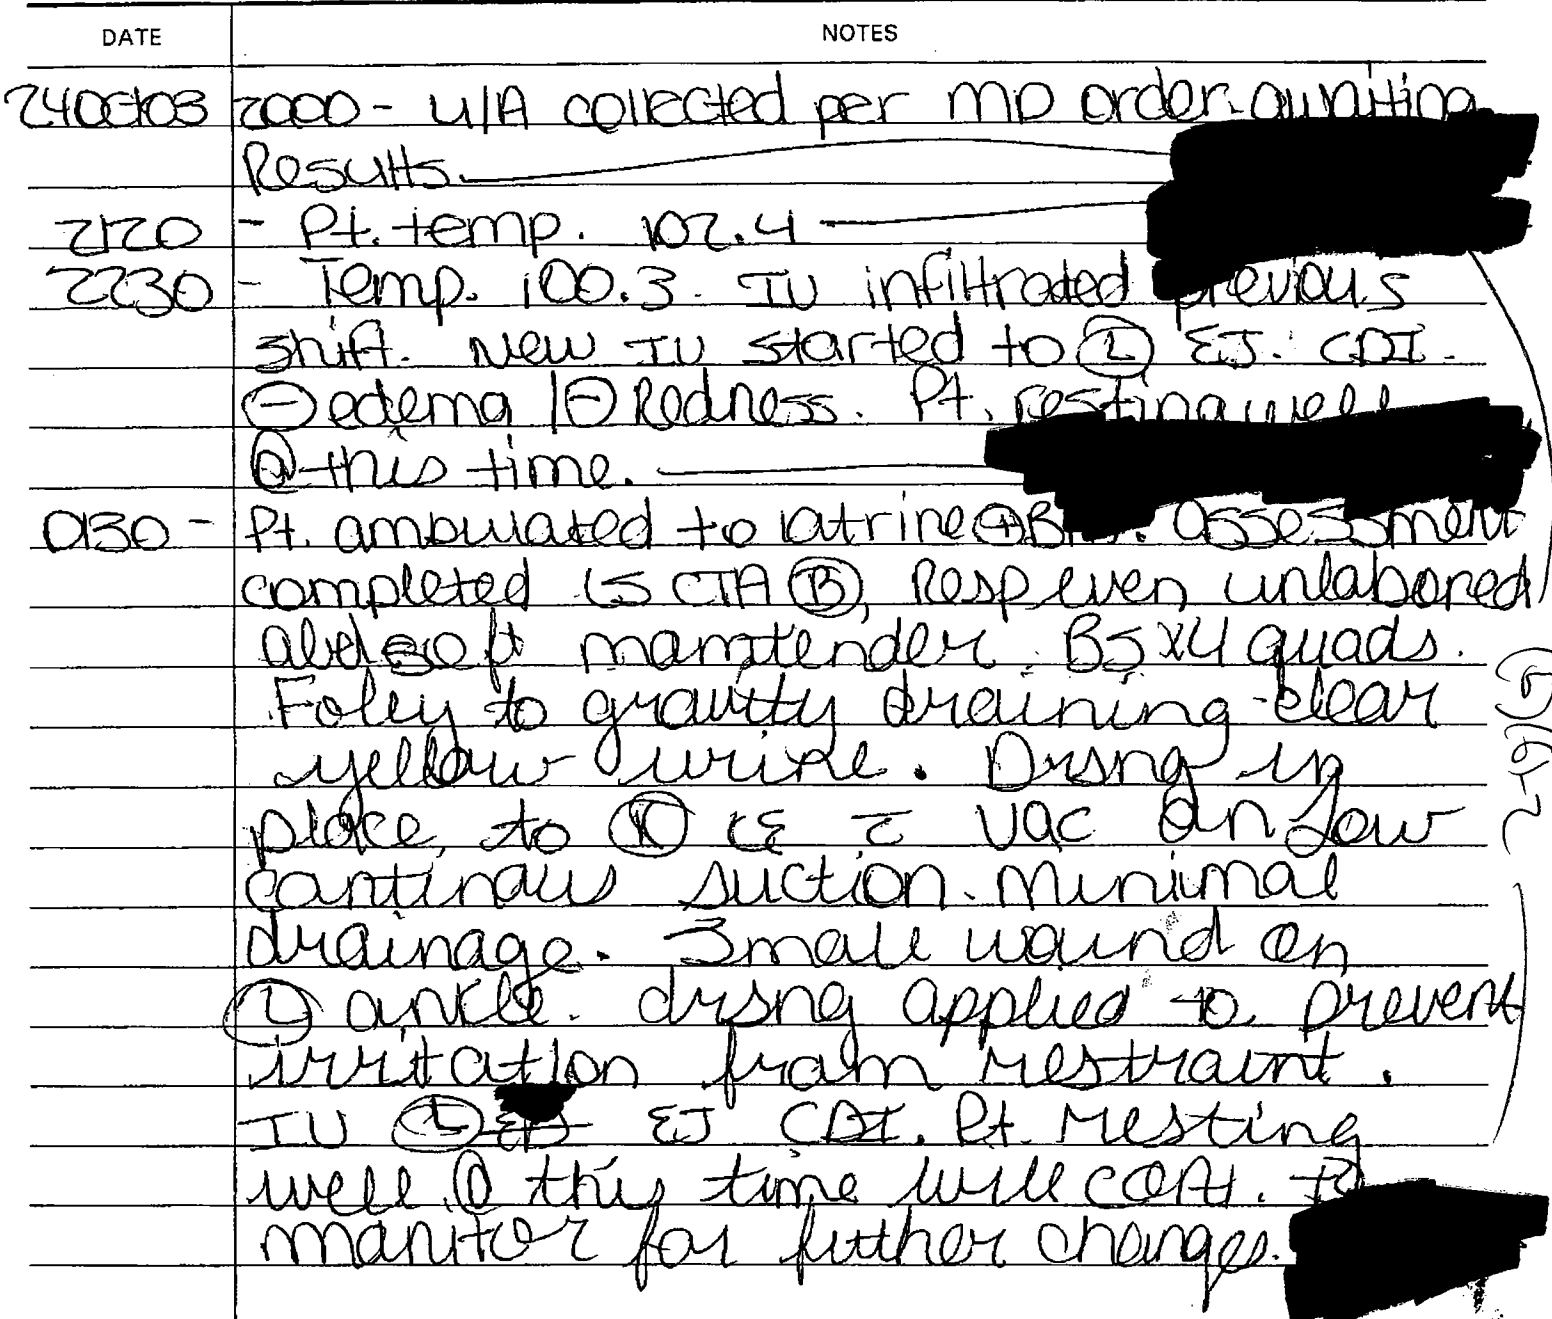 DATE NOTES
24Oct03 2000 - U/A collected per MD order. awaiting
Results.
2120 - Pt. temp. 102.4
2230 - Temp. 100.3. IV infiltrated previous
shift. New IV started to Ⓛ EJ. CDI.
⊖ edema / ⊖ Redness. Pt. resting well
@ this time.
0130 - Pt. ambulated to latrine ⊕ . assessment
completed LS CTA Ⓑ, Resp even unlabored
abd soft nontender. BS x4 quads.
Foley to gravity draining clear
yellow urine. Drsng in
place, to Ⓡ LE c̄ vac on low
continous suction. Minimal
drainage. Small wound on
Ⓛ ankle. drsng applied to prevent
irritation from restraint.
IV Ⓛ EJ CDI. Pt. resting
well @ this time will cont. to
monitor for further changes.
(b)(6)-2